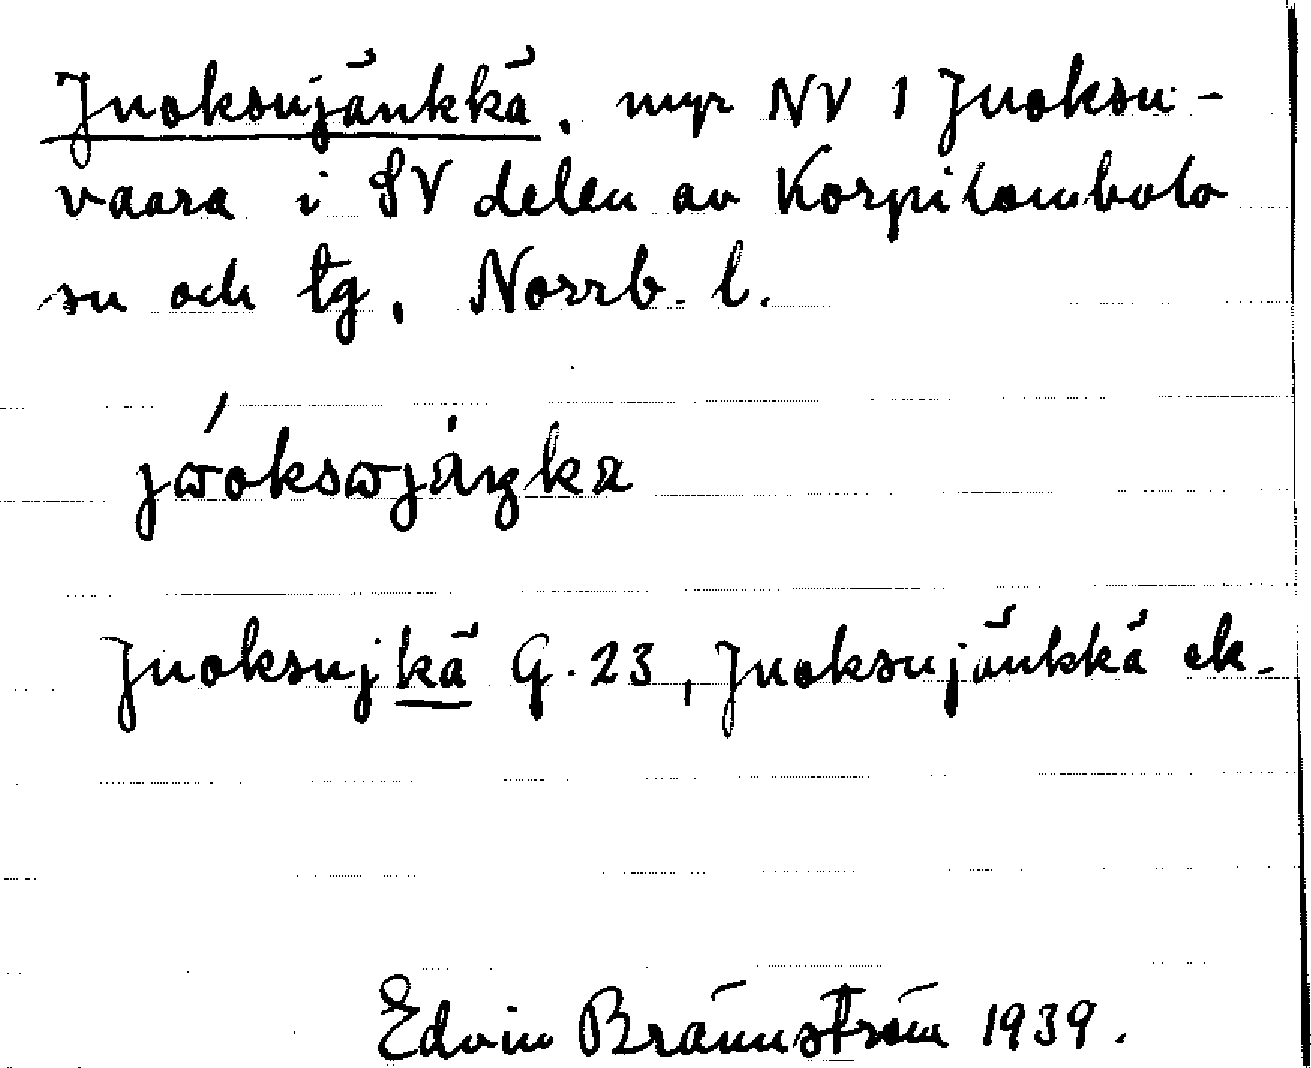 Juoksujänkkä, myr NV 1 Juoksu-
vaara i SV delen av Korpilombolo
sn och tg, Norrb. l.
jɷ́oksɷjáŋka
Juoksujkä G. 23, Juoksujänkkä ek.
Edvin Brännström 1939.